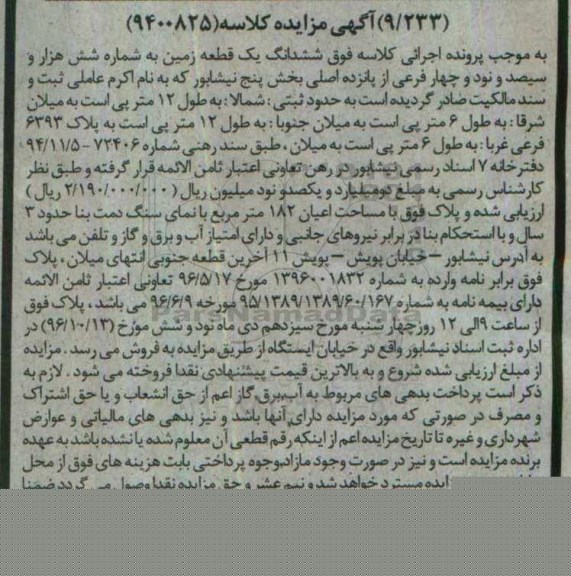 (۹/۲۳۳) آگهی مزایده کلاسه (۹۴۰۰۸۲۵)
به موجب پرونده اجرائی کلاسه فوق ششدانگ یک قطعه زمین به شماره شش هزار و
سیصد و نود و چهار فرعی از پانزده اصلی بخش پنج نیشابور که به نام اکرم عاملی ثبت و
سند مالکیت صادر گردیده است به حدود ثبتی : شمالا : به طول ۱۲ متر پی است به میلان
شرقا : به طول ۶ متر پی است به میلان جنوبا : به طول ۱۲ متر پی است به پلاک ۶۳۹۳
فرعی غربا : به طول ۶ متر پی است به میلان ، طبق سند رهنی شماره ۷۲۴۰۶ - ۹۴/۱۱/۵
دفترخانه ۷ اسناد رسمی نیشابور در رهن تعاونی اعتبار ثامن الائمه قرار گرفته و طبق نظر
کارشناس رسمی به مبلغ دو میلیارد و یکصد و نود میلیون ریال ( ۲/۱۹۰/۰۰۰/۰۰۰ ریال )
ارزیابی شده و پلاک فوق با مساحت اعیان ۱۸۲ متر مربع با نمای سنگ دمت بنا حدود ۳
سال و با استحکام بنا در برابر نیروهای جانبی و دارای امتیاز آب و برق و گاز و تلفن می باشد
به آدرس نیشابور – خیابان پویش – پویش ۱۱ آخرین قطعه جنوبی انتهای میلان ، پلاک
فوق برابر نامه وارده به شماره ۱۳۹۶۰۰۱۸۳۲ مورخ ۹۶/۵/۱۷ تعاونی اعتبار ثامن الائمه
دارای بیمه نامه به شماره ۹۵/۱۳۸۹/۱۳۸۹/۶۰/۱۶۷ مورخه ۹۶/۶/۹ می باشد ، پلاک فوق
از ساعت ۹ الی ۱۲ روز چهارشنبه مورخ سیزدهم دی ماه نود و شش مورخ (۹۶/۱۰/۱۳) در
اداره ثبت اسناد نیشابور واقع در خیابان ایستگاه از طریق مزایده به فروش می رسد . مزایده
از مبلغ ارزیابی شده شروع و به بالاترین قیمت پیشنهادی نقدا فروخته می شود . لازم به
ذکر است پرداخت بدهی های مربوط به آب،برق، گاز اعم از حق انشعاب و یا حق اشتراک
و مصرف در صورتی که مورد مزایده دارای آنها باشد و نیز بدهی های مالیاتی و عوارض
شهرداری و غیره تا تاریخ مزایده اعم از اینکه رقم قطعی آن معلوم شده یا نشده باشد به عهده
برنده مزایده است و نیز در صورت وجود مازاد،وجوه پرداختی بابت هزینه های فوق از محل
ایده مسترد خواهد شد و نیم عشر و حق مزایده نقدا وصول می گردد ضمنا
ParsNamadData